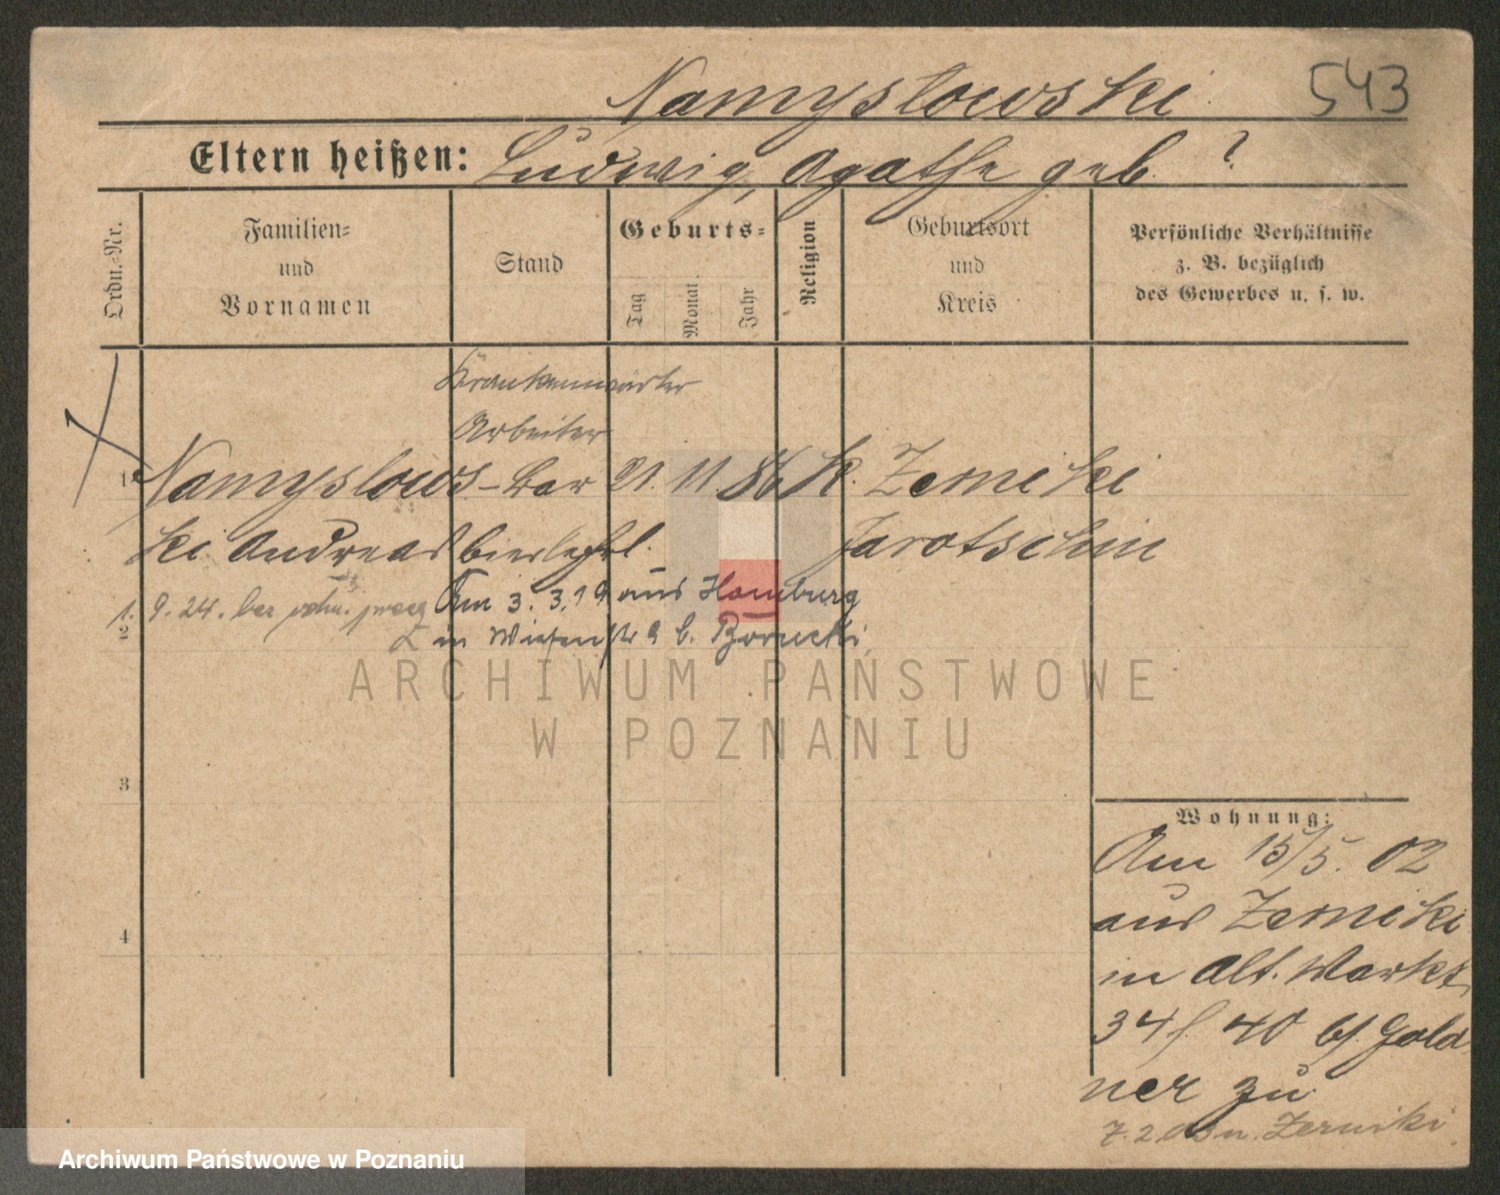 Namyslowski
543
Eltern heißen: Ludwig, Agathe geb. ?
Ordn.-Nr.
Familien-
und
Vornamen
Stand
Geburts-
Tag
Monat
Jahr
Religion
Geburtsort
und
Kreis
Persönliche Verhältnisse
z. B. bezüglich
des Gewerbes u. s. w.
Krankenwärter
Arbeiter
1 Namyslows- Bar 21. 11. 86 K. Zerniki
ki Andreas bierlehrl. Jarotschin
1. 9. 24. Am 3. 3. 19 aus Hamburg
2 in Wiesenstr 9 b. Borucki
3
4
Wohnung:
Am 15/5. 02
aus Zerniki
in Alt. Markt
34/40 b/ Gold
ner zu
n. Zerniki
ARCHIWUM PAŃSTWOWE
W POZNANIU
Archiwum Państwowe w Poznaniu